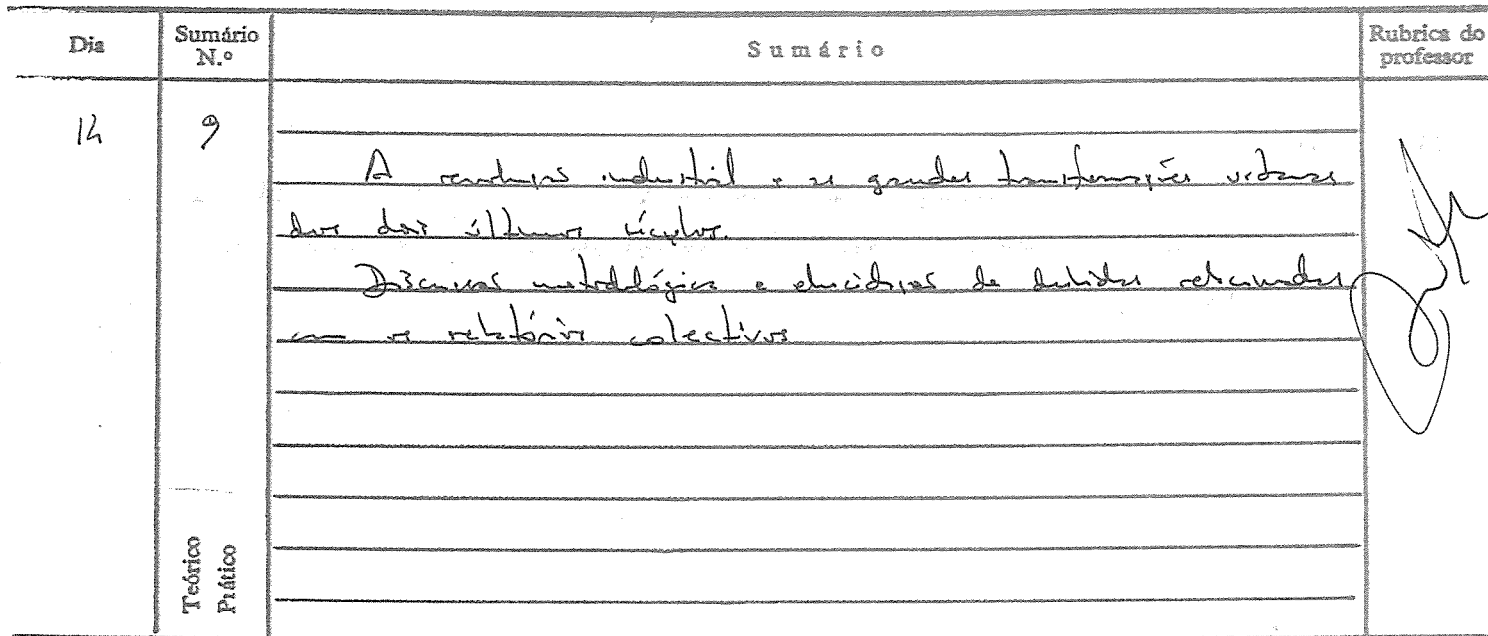 Dia
Sumário N.º
Sumário
Rubrica do professor
14
9
A revolução industrial e as grandes transformações urbanas
dos dois últimos séculos.
Discussão metodológica e elucidação de dúvidas relacionadas
com os relatórios colectivos
Teórico
Prático